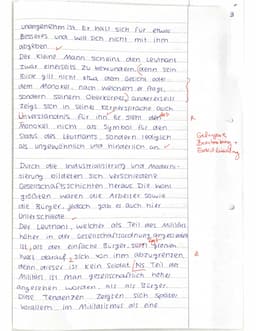 3
unangenehm ist. Er hält sich für etwas
Besseres und will sich nicht mit ihm
abgeben.
Der kleine Mann scheint den Leutnant
zwar einerseits zu bewundern, denn sein
Blick gilt nicht etwa dem Gesicht oder
dem Monokel, nach welchem er fragt,
sondern seinem Oberkörper, andererseits
zeigt sich in seiner Körpersprache auch
Unverständnis für ihn. Er sieht den
Monokel nicht als Symbol für den
Status des Leutnants, sondern lediglich
als ungewöhnlich und hinderlich an.
R
Gelungene
Beschreibung +
Durch die Industrialisierung und Moderni-
sierung bildeten sich verschiedene
Gesellschaftsschichten heraus. Die wohl
größten waren die Arbeiter sowie
die Bürger, jedoch gab es auch hier
Unterschiede.
Der Leutnant, welcher als Teil des Militärs
höher in der Gesellschaftsordnung angesehen
ist, als der einfache Bürger,
Wert darauf, sich von ihm abzugrenzen,
denn dieser ist kein Soldat. Als Teil des
Militärs ist man gesellschaftlich höher
angesehen worden, als als Bürger.
Diese Tendenzen zeigten sich später
vor allem im Militarismus als eine